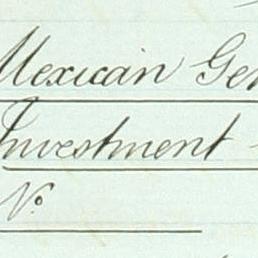 Mexican Gen
Investment
No.